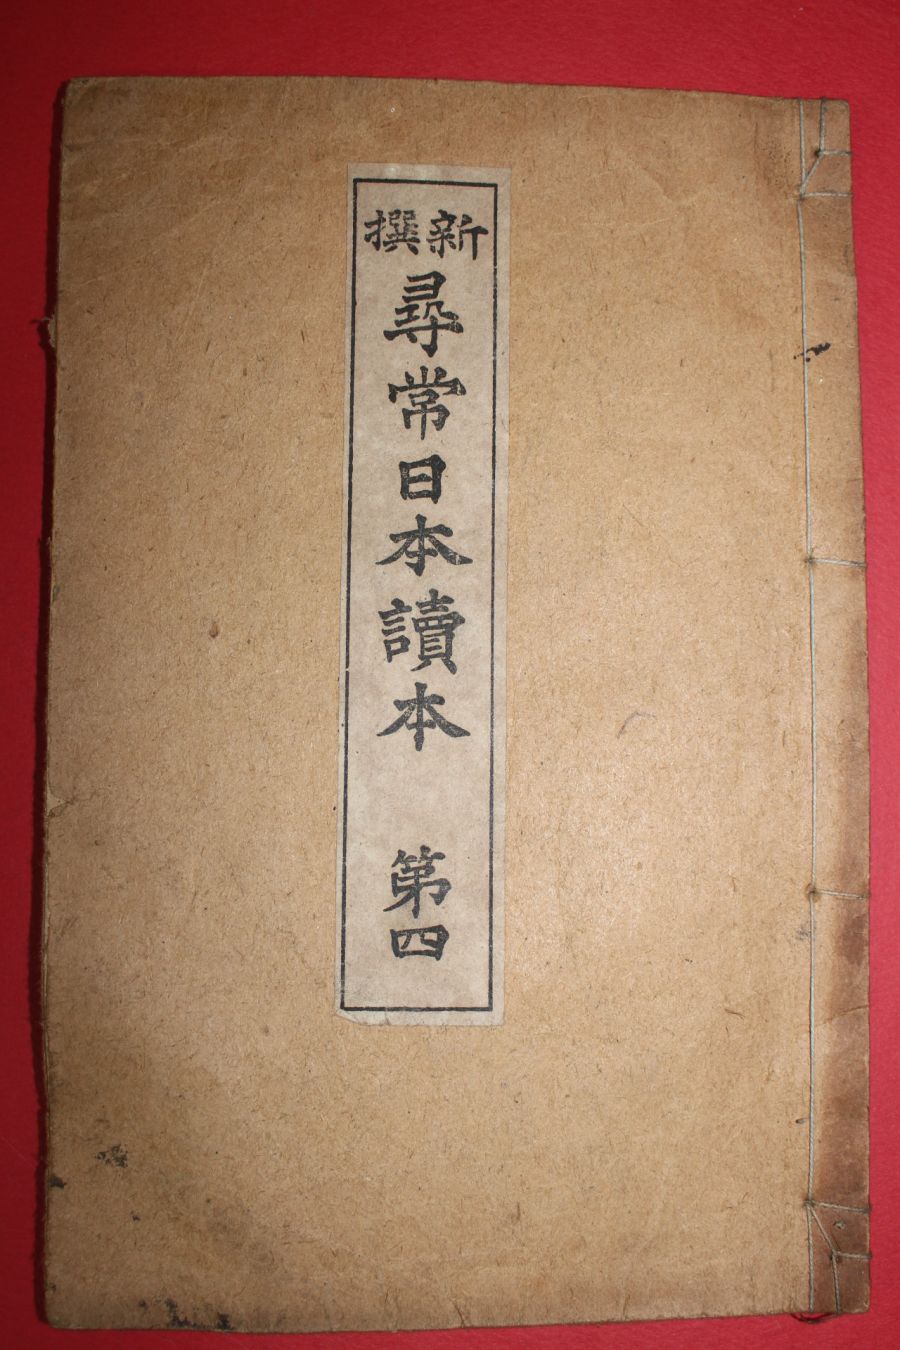 新撰
尋常日本讀本 第四